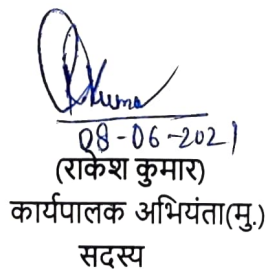 08-06-2021
(राकेश कुमार)
कार्यपालक अभियंता(मु.)
सदस्य